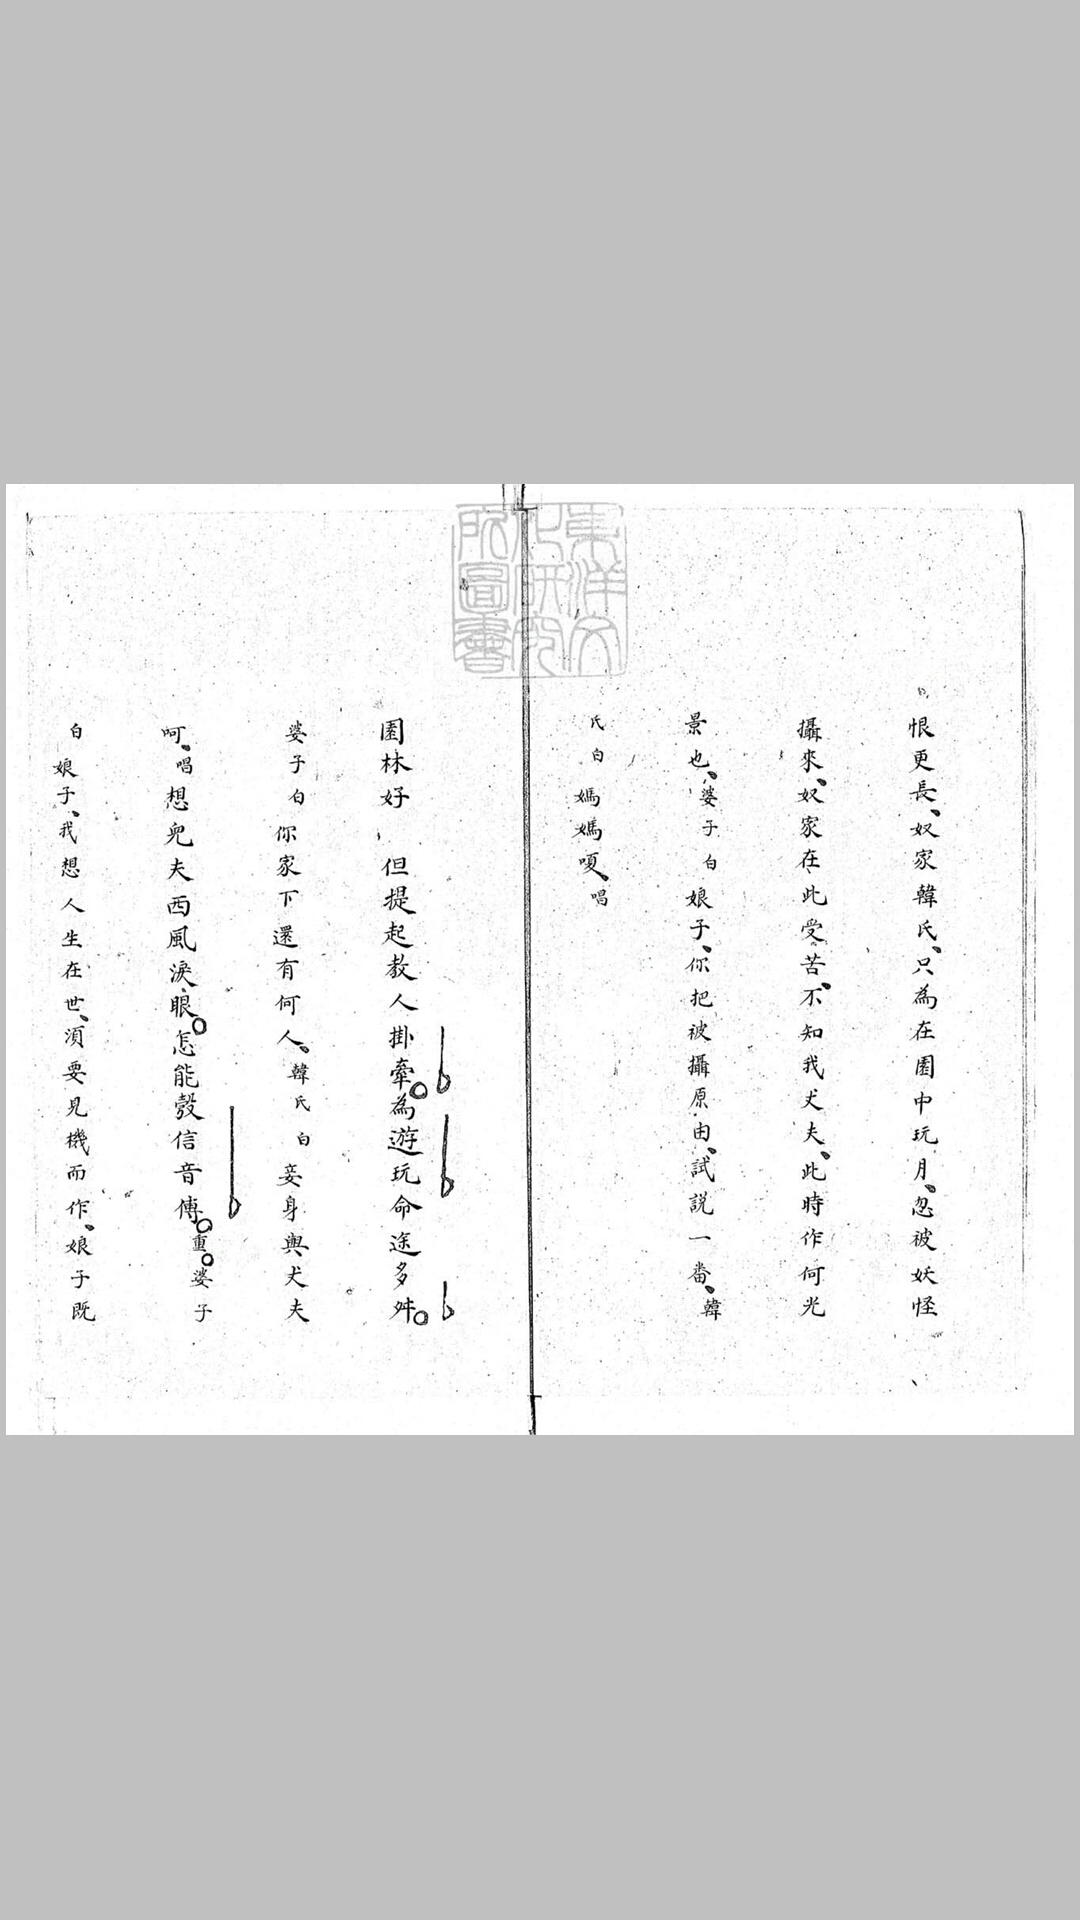 恨更長、奴家韓氏、只為在園中玩月、忽被妖怪
攝來、奴家在此受苦、不知我丈夫、此時作何光
景也、婆子白娘子、你把被攝原由、試説一番、韓
氏白媽媽嗄、唱
園林好 但提起教人掛牽。為遊玩命途多舛。
婆子白你家下還有何人、韓氏白妾身與丈夫
呵、唱想兒夫西風淚眼。怎能彀信音傳。重。婆子
白娘子、我想人生在世、須要見機而作、娘子既
東洋文
化研究
所圖書